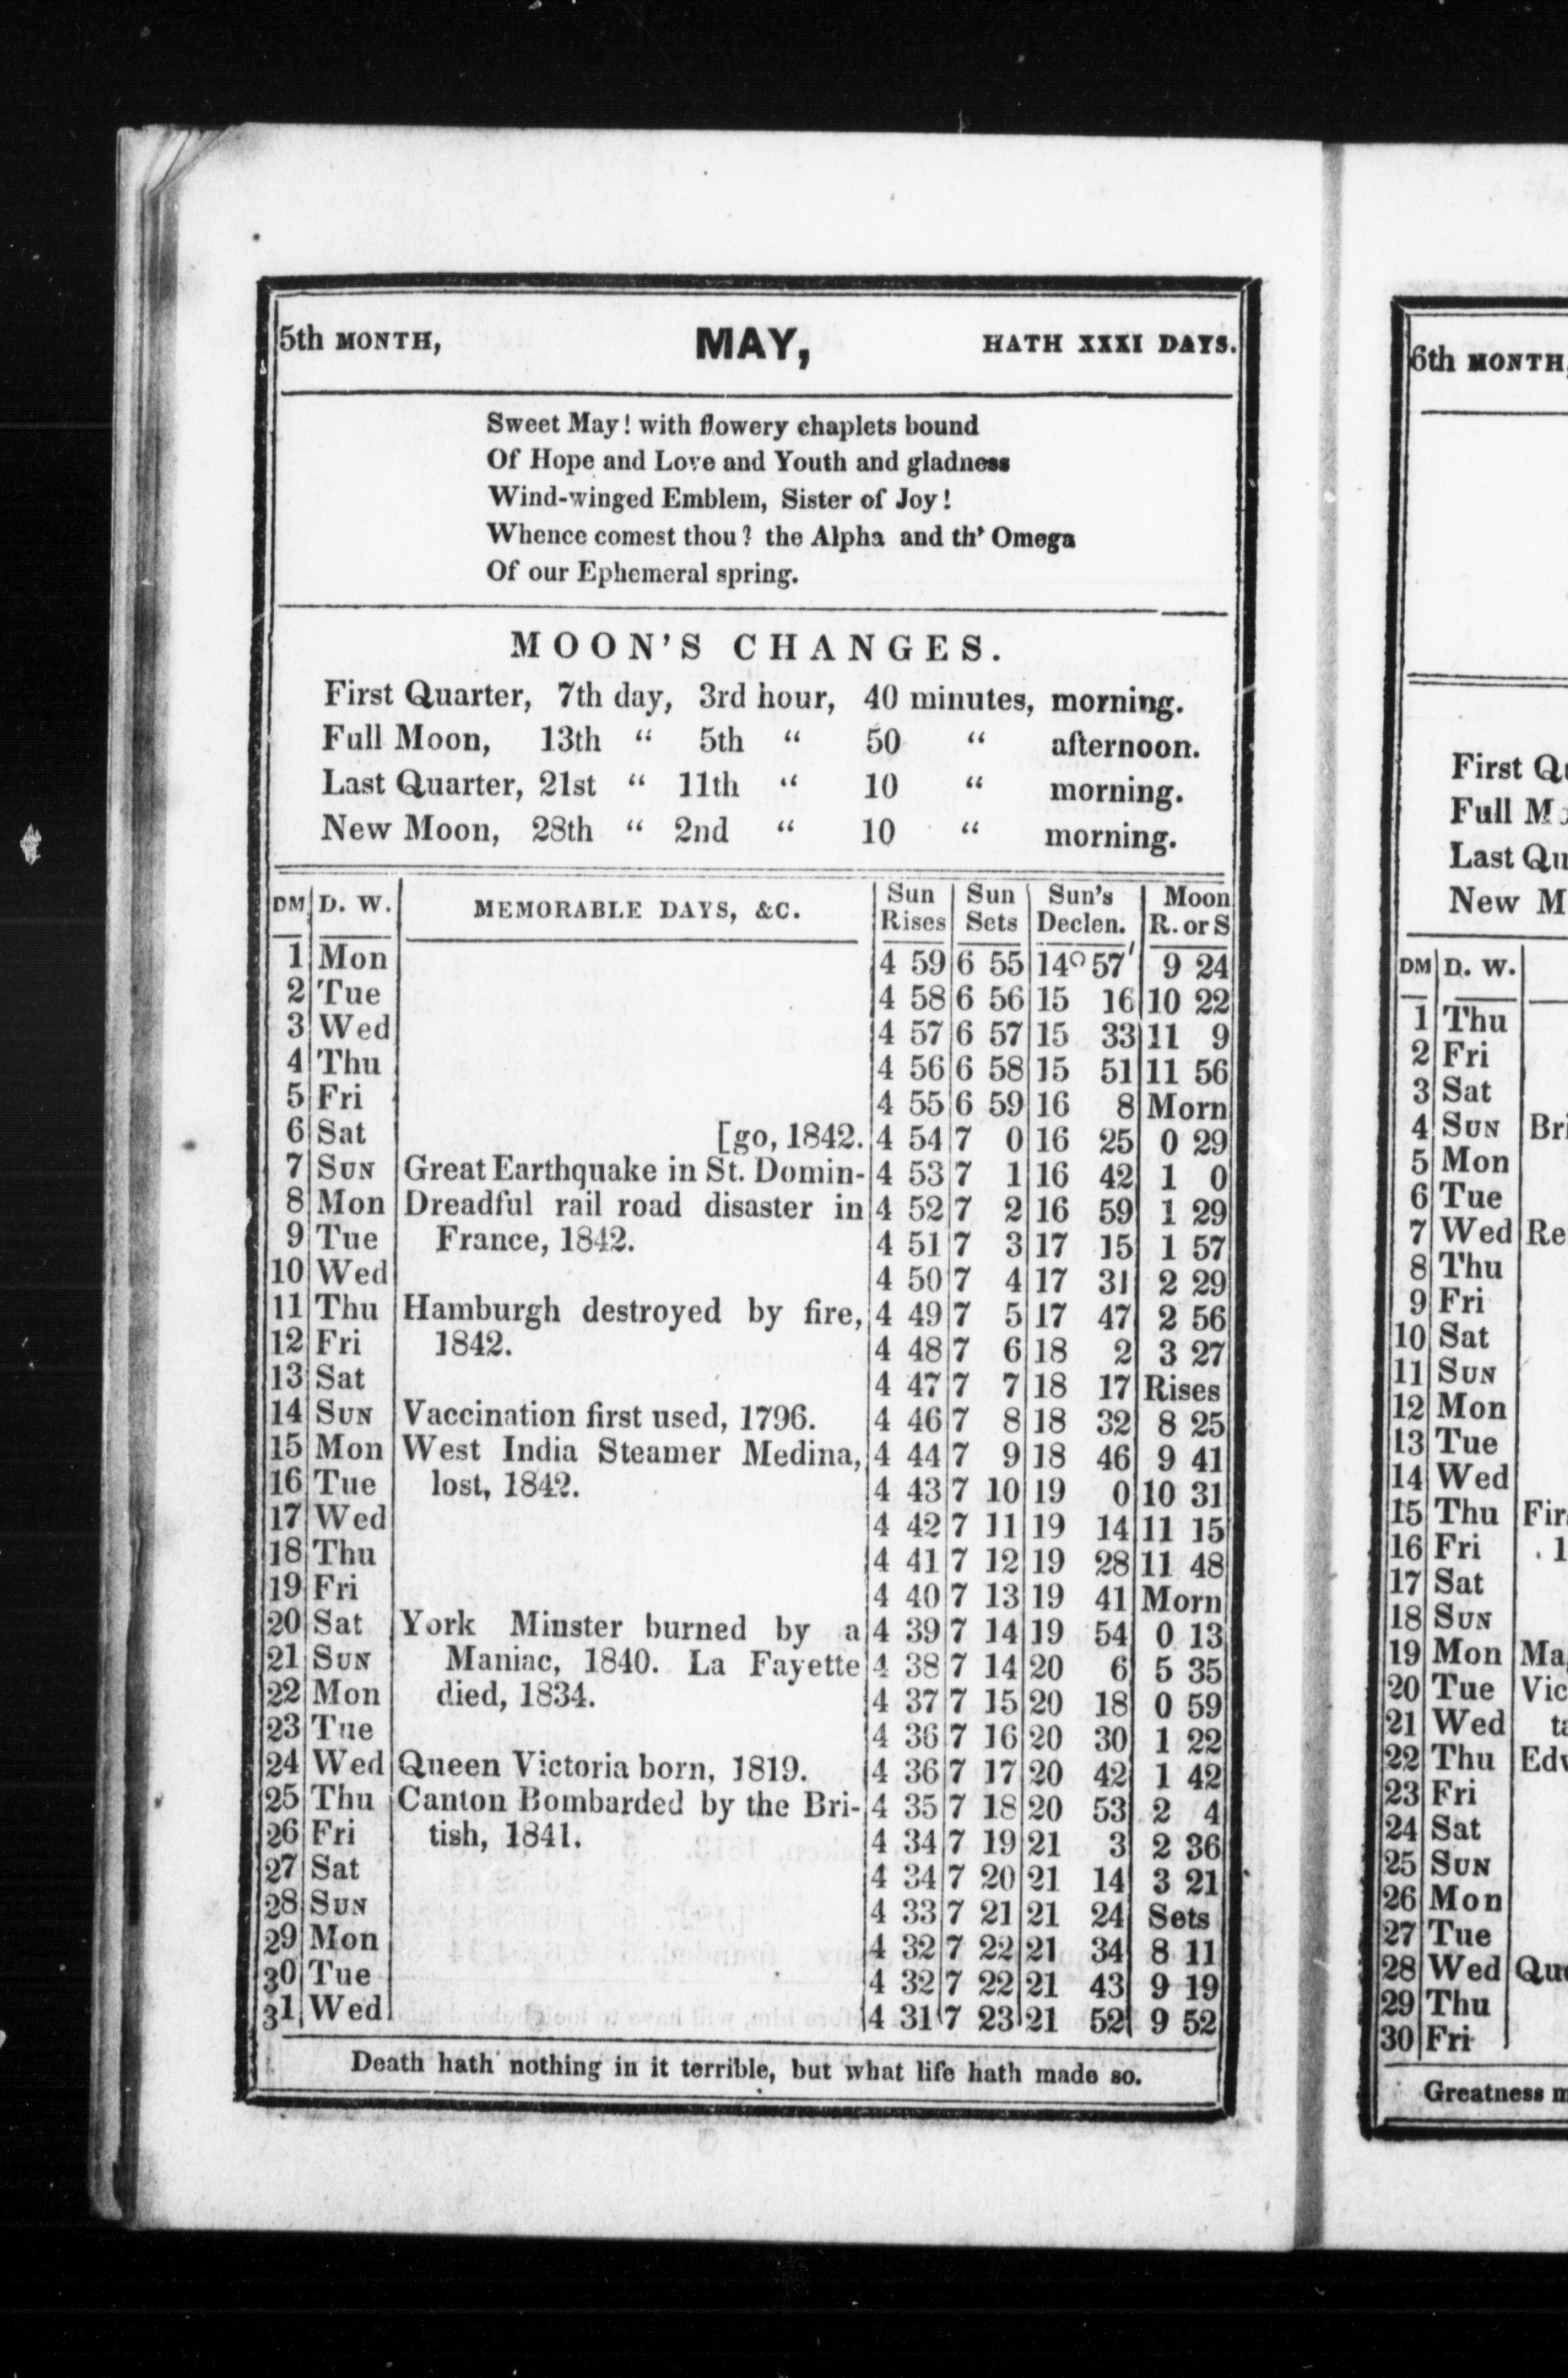 5th MONTH, MAY, HATH XXXI DAYS.
Sweet May! with flowery chaplets bound
Of Hope and Love and Youth and gladness
Wind-winged Emblem, Sister of Joy!
Whence comest thou? the Alpha and th' Omega
Of our Ephemeral spring.
MOON'S CHANGES.
First Quarter, 7th day, 3rd hour, 40 minutes, morning.
Full Moon, 13th “ 5th “ 50 “ afternoon.
Last Quarter, 21st “ 11th “ 10 “ morning.
New Moon, 28th “ 2nd “ 10 “ morning.
DM D. W. MEMORABLE DAYS, &C. Sun Rises Sun Sets Sun's Declen. Moon R. or S
1 Mon 4 59 6 55 14° 57′ 9 24
2 Tue 4 58 6 56 15 16 10 22
3 Wed 4 57 6 57 15 33 11 9
4 Thu 4 56 6 58 15 51 11 56
5 Fri 4 55 6 59 16 8 Morn
6 Sat [go, 1842. 4 54 7 0 16 25 0 29
7 SUN Great Earthquake in St. Domin- 4 53 7 1 16 42 1 0
8 Mon Dreadful rail road disaster in 4 52 7 2 16 59 1 29
9 Tue France, 1842. 4 51 7 3 17 15 1 57
10 Wed 4 50 7 4 17 31 2 29
11 Thu Hamburgh destroyed by fire, 4 49 7 5 17 47 2 56
12 Fri 1842. 4 48 7 6 18 2 3 27
13 Sat 4 47 7 7 18 17 Rises
14 SUN Vaccination first used, 1796. 4 46 7 8 18 32 8 25
15 Mon West India Steamer Medina, 4 44 7 9 18 46 9 41
16 Tue lost, 1842. 4 43 7 10 19 0 10 31
17 Wed 4 42 7 11 19 14 11 15
18 Thu 4 41 7 12 19 28 11 48
19 Fri 4 40 7 13 19 41 Morn
20 Sat York Minster burned by a 4 39 7 14 19 54 0 13
21 SUN Maniac, 1840. La Fayette 4 38 7 14 20 6 5 35
22 Mon died, 1834. 4 37 7 15 20 18 0 59
23 Tue 4 36 7 16 20 30 1 22
24 Wed Queen Victoria born, 1819. 4 36 7 17 20 42 1 42
25 Thu Canton Bombarded by the Bri- 4 35 7 18 20 53 2 4
26 Fri tish, 1841. 4 34 7 19 21 3 2 36
27 Sat 4 34 7 20 21 14 3 21
28 SUN 4 33 7 21 21 24 Sets
29 Mon 4 32 7 22 21 34 8 11
30 Tue 4 32 7 22 21 43 9 19
31 Wed 4 31 7 23 21 52 9 52
Death hath nothing in it terrible, but what life hath made so.
6th MONTH,
First
Full
Last
New
DM D. W.
1 Thu
2 Fri
3 Sat
4 SUN
5 Mon
6 Tue
7 Wed
8 Thu
9 Fri
10 Sat
11 SUN
12 Mon
13 Tue
14 Wed
15 Thu
16 Fri
17 Sat
18 SUN
19 Mon
20 Tue
21 Wed
22 Thu
23 Fri
24 Sat
25 SUN
26 Mon
27 Tue
28 Wed
29 Thu
30 Fri
Greatness